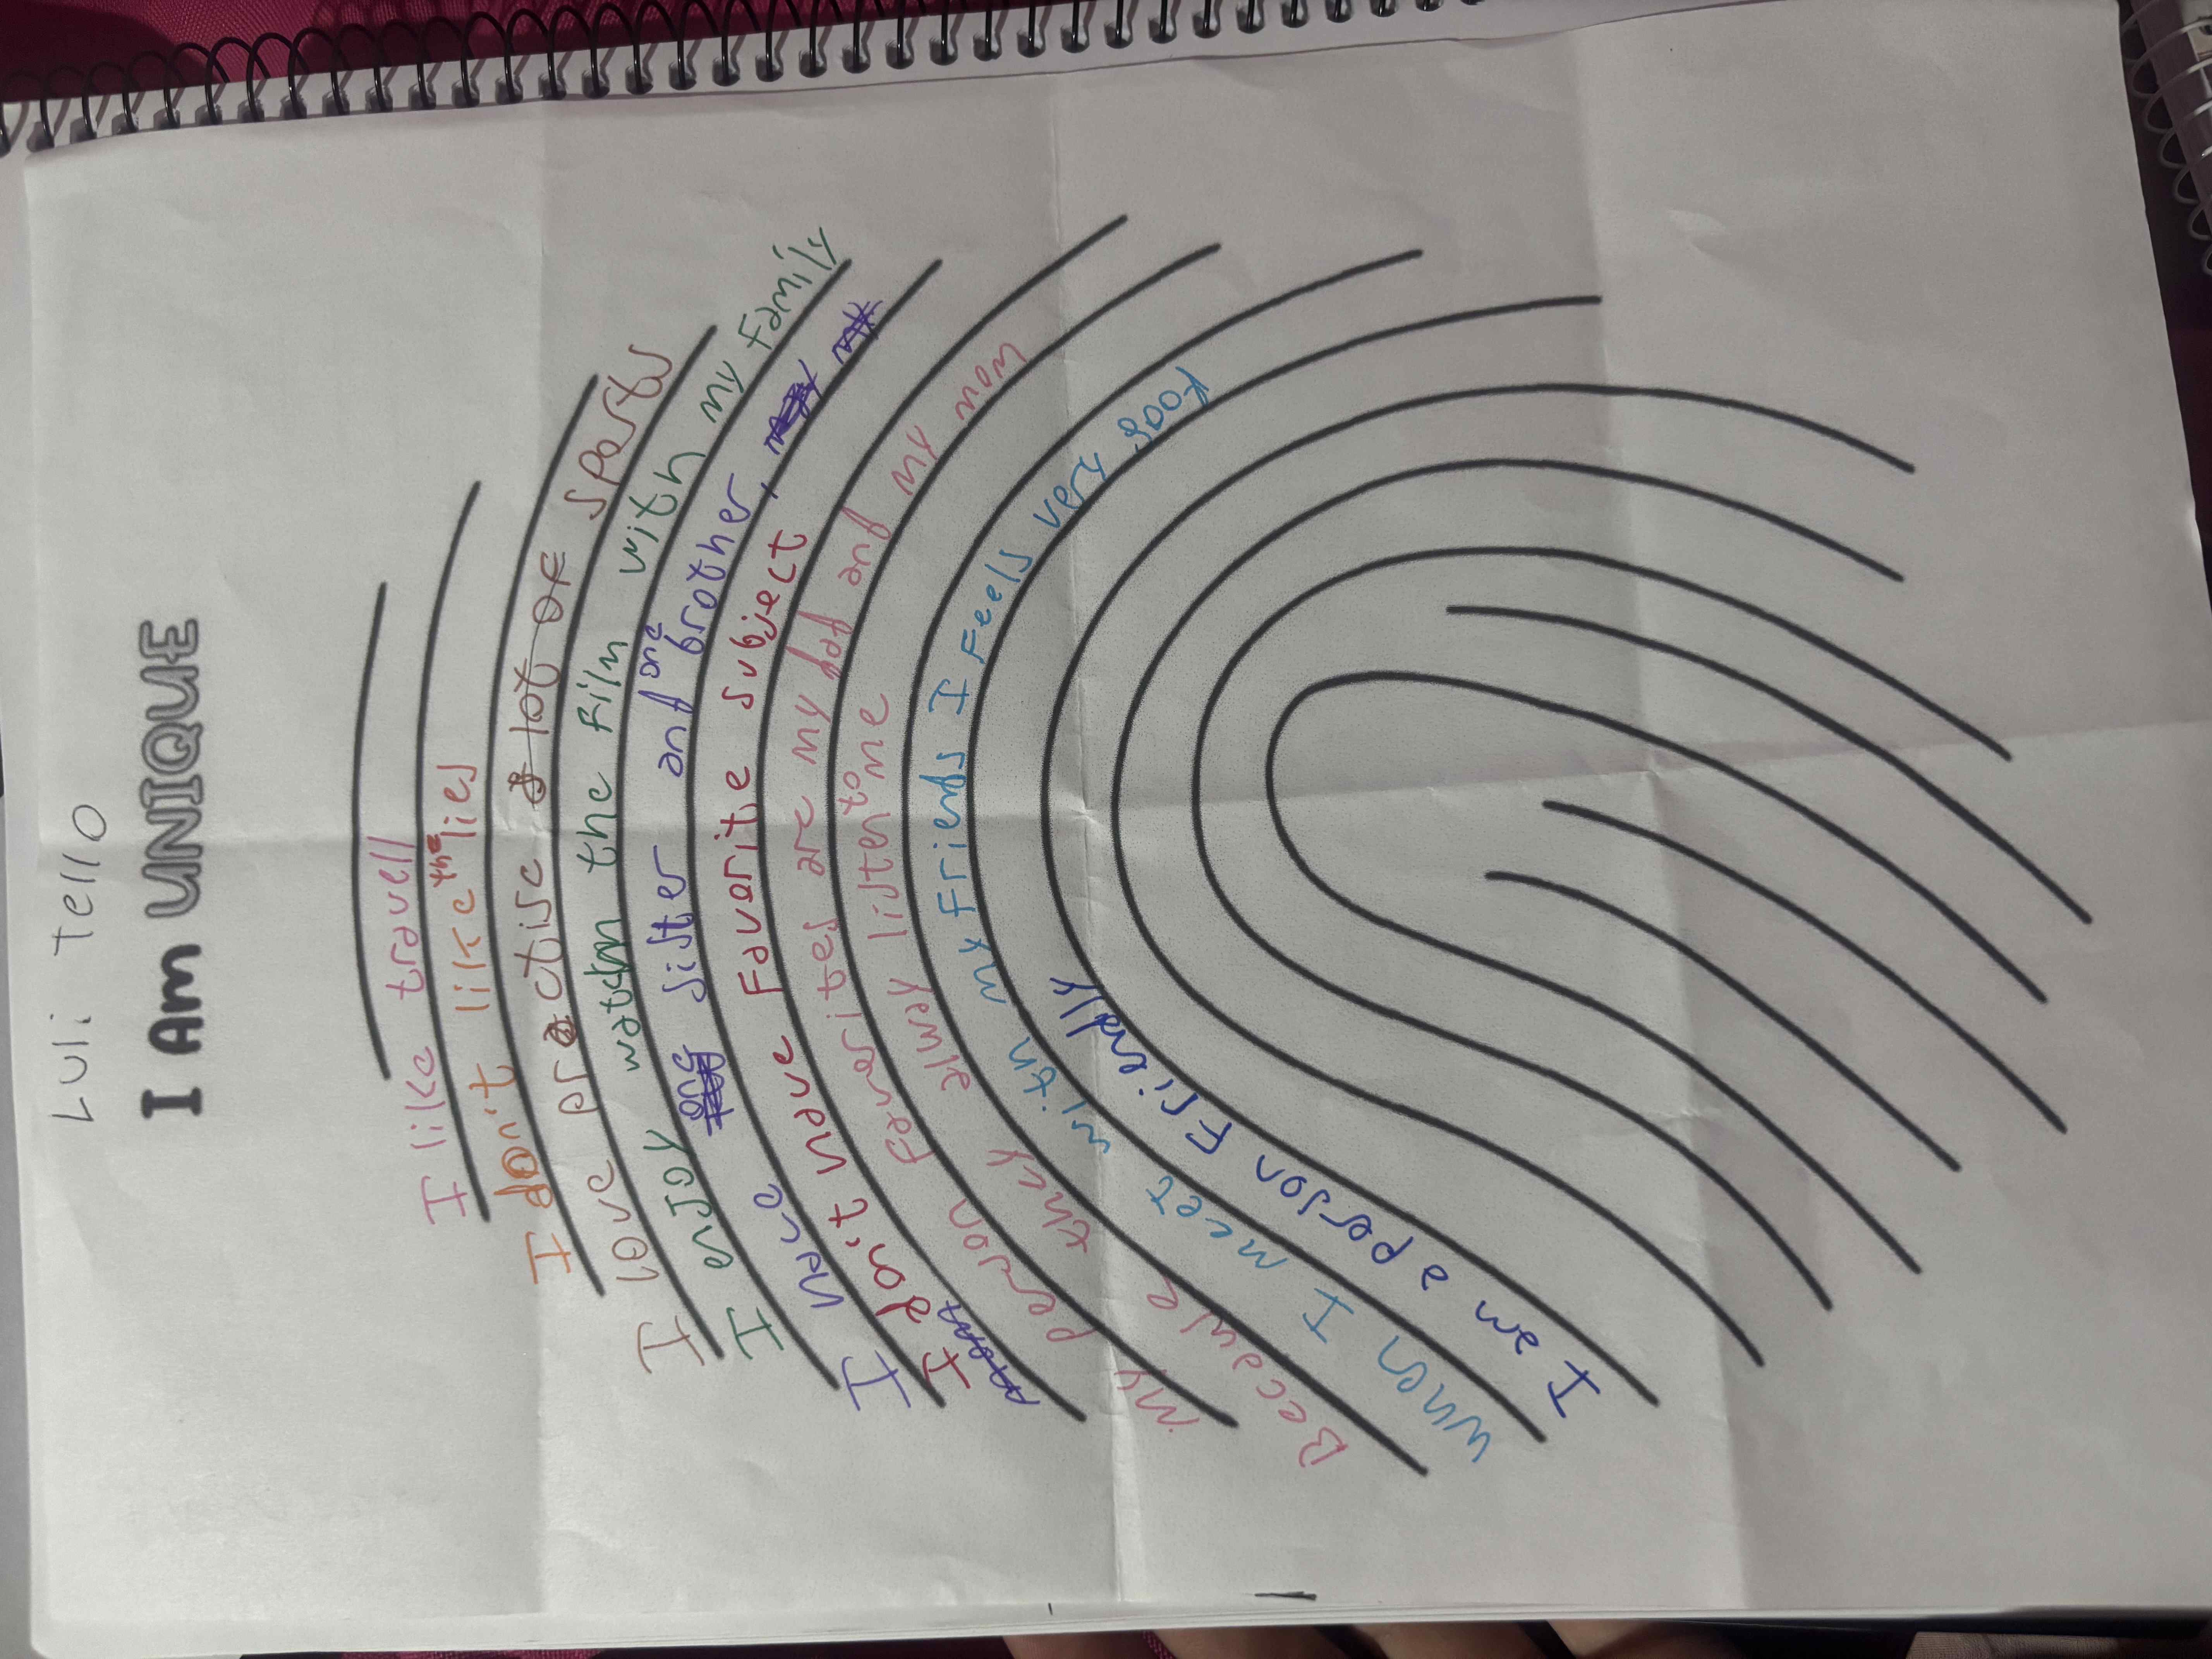 Luli Tello
I Am UNIQUE
I like travell
I don't like the lies
I love practise a lot of sports
I enjoy watch the film with my family
I have one sister and one brother,
I don't have favorite subject
my person faverites are my dad and my mom
Because they alway listen to me
when I meet with my friends I feels very good
I am a person friendly